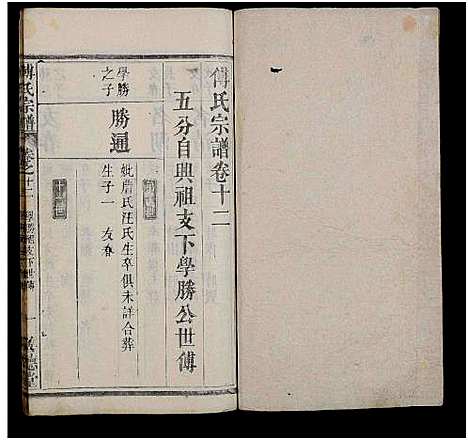 傅氏宗譜卷十二
五分自興祖支下學勝公世傳
學勝
之子
勝通
妣詹氏汪氏生卒俱未詳合葬
生子一 友春
傅氏宗譜
卷之十二
學勝祖支下世傳
一
德堂